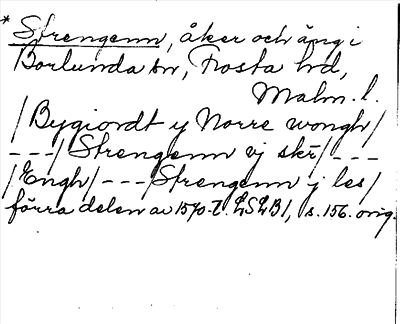 * Strengenn, åker och äng i
Borlunda sn, Frosta hd,
Malm. l.
/Bygiordt y Norre wongh/
---/Strengenn vj skr/---
/Engh/---/Strengenn j les/
förra delen av 1570-t. LSLB1, s. 156. orig.